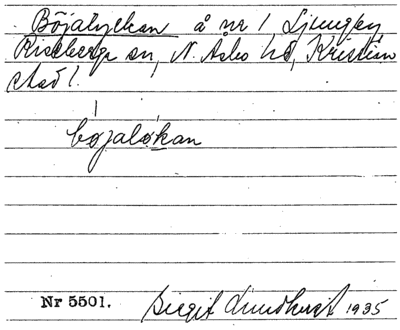 Böjalyckan å nr 1 Ljungby
Riseberga sn, N. Åsbo hd, Kristian
stad l.
bøjalo̱kan
Nr 5501. Birgit Lundkvist 1935